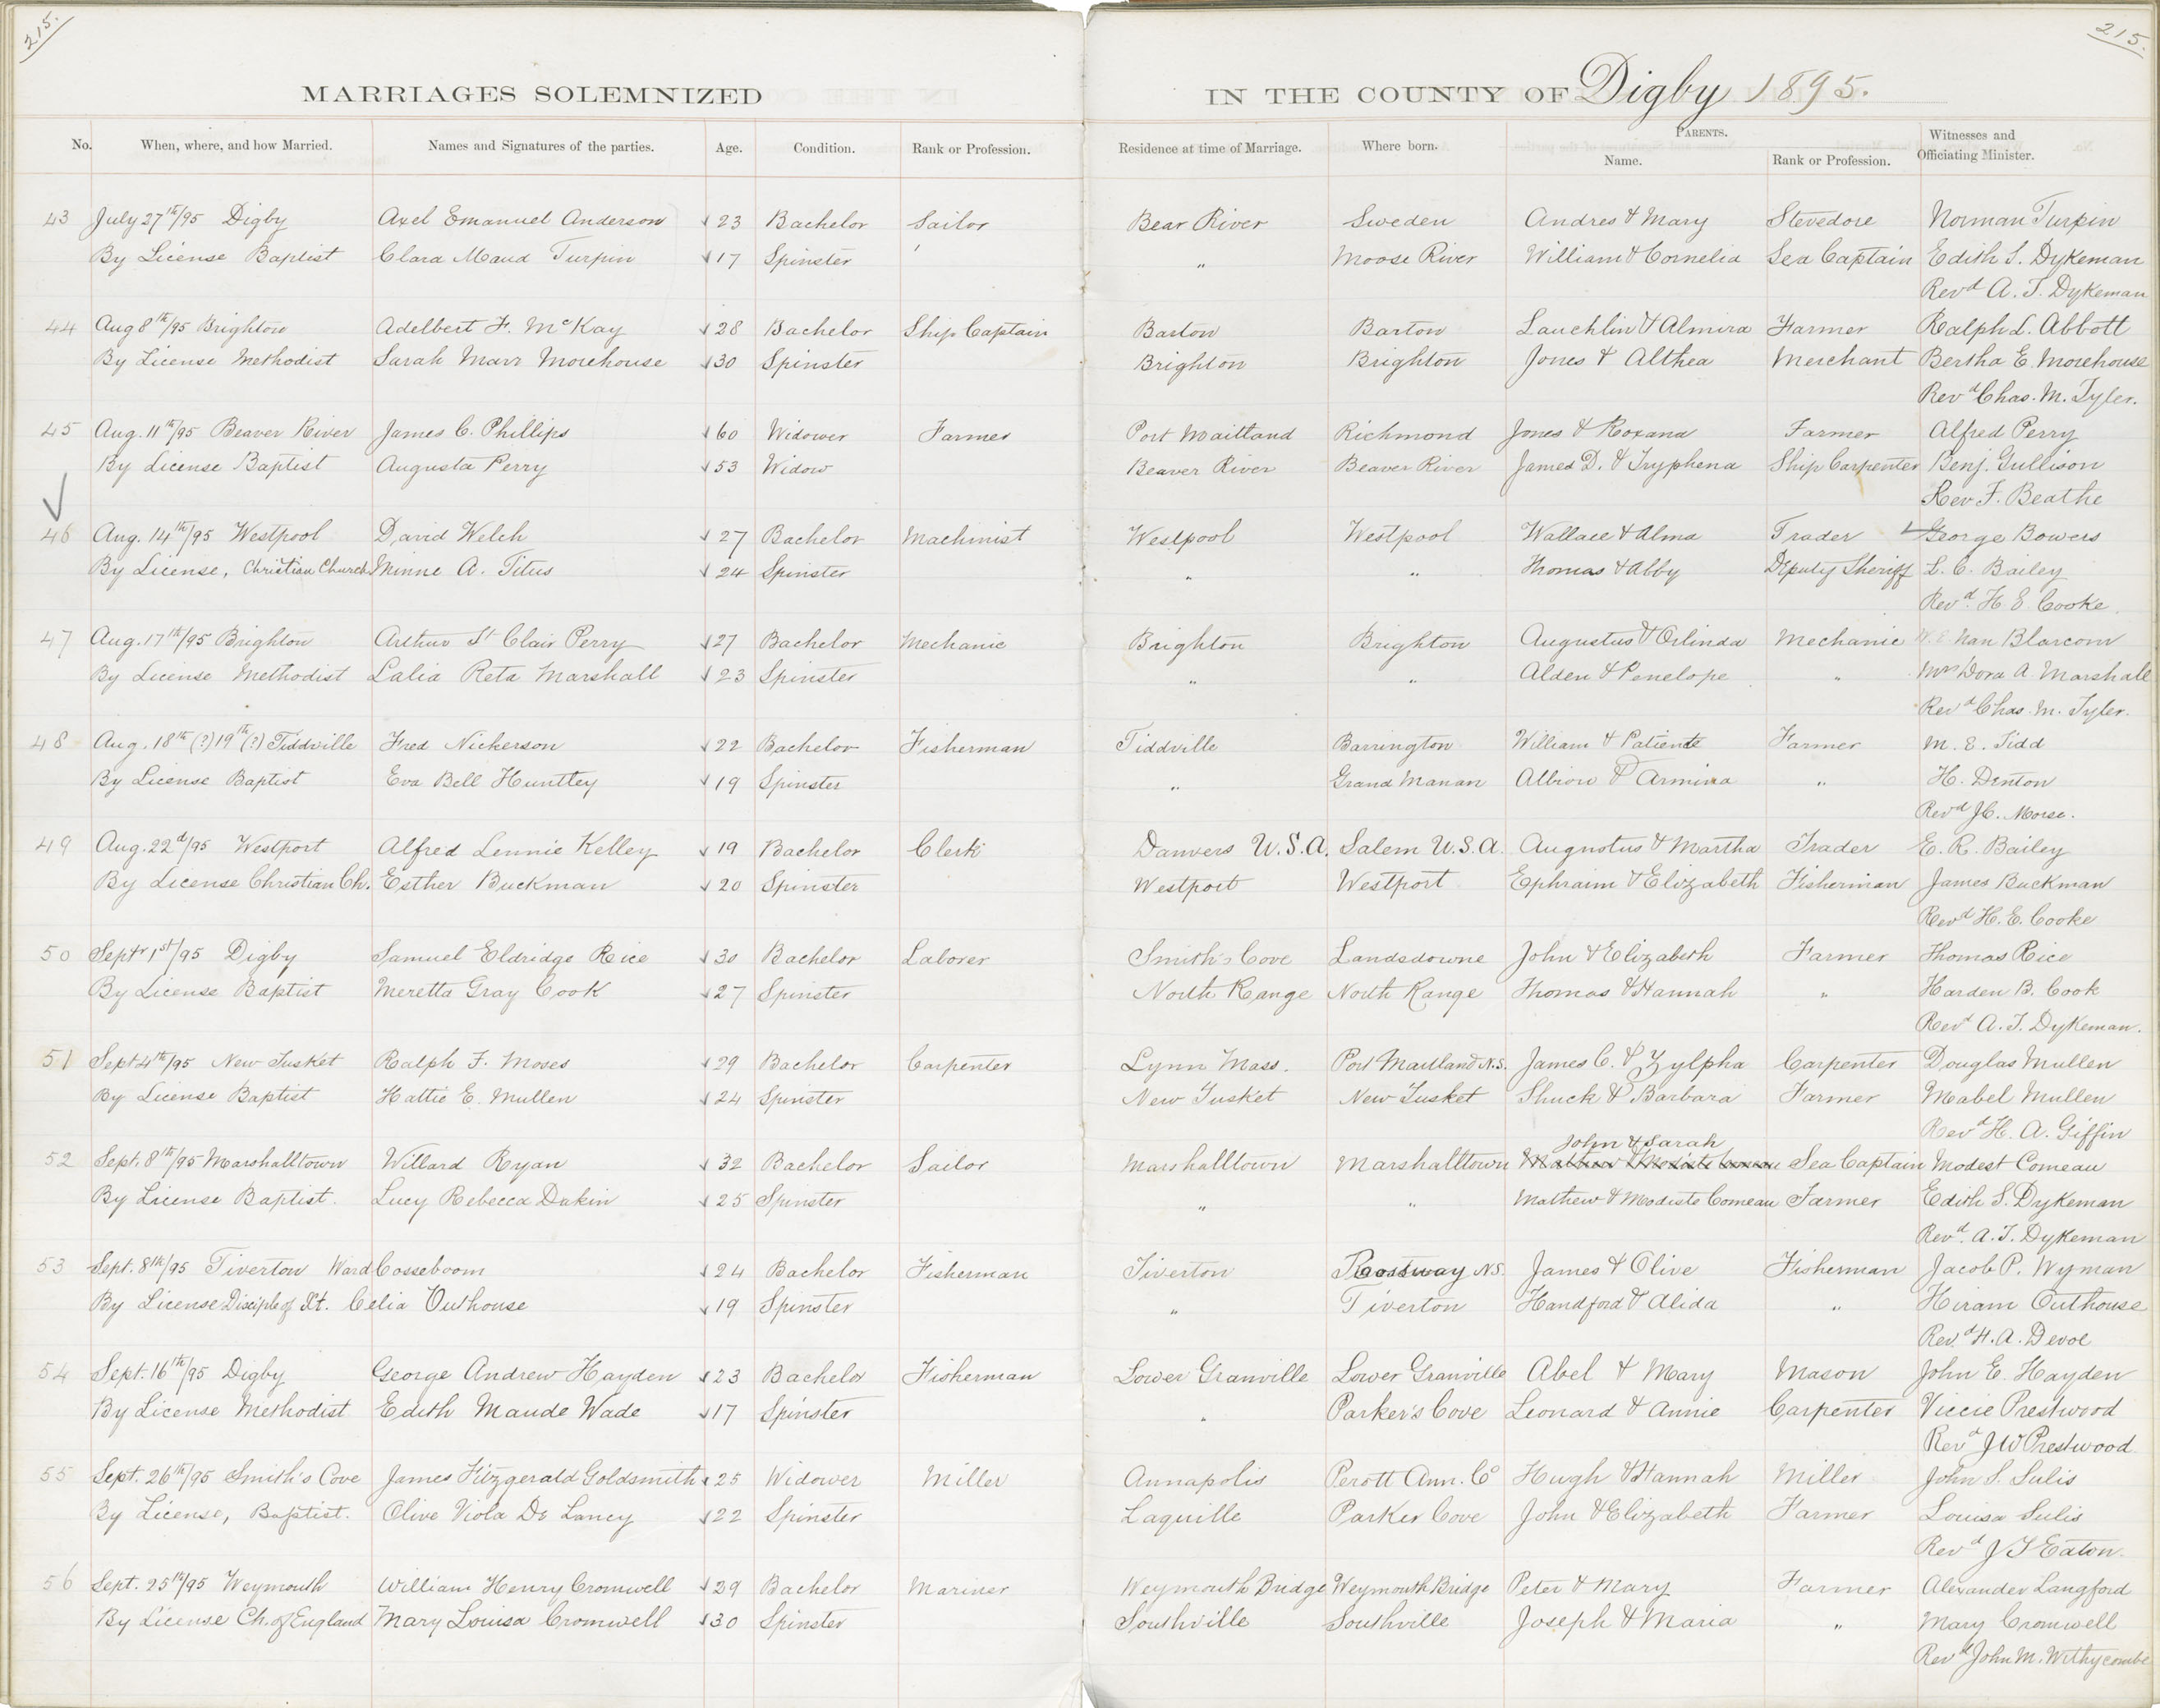 215.
215.
MARRIAGES SOLEMNIZED IN THE COUNTY OF Digby 1895.
No. When, where, and how Married. Names and Signatures of the parties. Age. Condition. Rank or Profession. Residence at time of Marriage. Where born. PARENTS. Name. Rank or Profession. Witnesses and Officiating Minister.
43 July 27th/95 Digby Axel Emanuel Anderson 23 Bachelor Sailor Bear River Sweden Andres & Mary Stevedore Norman Turpin
By License Baptist Clara Maud Turpin 17 Spinster " Moose River William & Cornelia Sea Captain Edith S. Dykeman
Revd A. T. Dykeman
44 Aug 8th/95 Brighton Adelbert F. McKay 28 Bachelor Ship Captain Barton Barton Lauchlin & Almira Farmer Ralph L. Abbott
By License Methodist Sarah Marr Morehouse 30 Spinster Brighton Brighton Jones & Althea Merchant Bertha E. Morehouse
Revd Chas. M. Tyler.
45 Aug. 11th/95 Beaver River James C. Phillips 60 Widower Farmer Port Maitland Richmond Jones & Roxana Farmer Alfred Perry
By License Baptist Augusta Perry 53 Widow Beaver River Beaver River James D. & Tryphena Ship Carpenter Benj. Gullison
Rev F. Beathe
46 Aug. 14th/95 Westpool David Welch 27 Bachelor Machinist Westpool Westpool Wallace & Alma Trader George Bowers
By License, Christian Church Minne A. Titus 24 Spinster " " Thomas & Abby Deputy Sheriff L. C. Bailey
Revd. H. E. Cooke.
47 Aug. 17th/95 Brighton Arthur St Clair Perry 27 Bachelor Mechanic Brighton Brighton Augustus & Orlinda Mechanic W. E. Van Blarcom
By License Methodist Lalia Reta Marshall 23 Spinster " " Alden & Penelope " Mrs Dora A. Marshall
Revd Chas. M. Tyler.
48 Aug. 18th (?) 19th (?) Tiddville Fred Nickerson 22 Bachelor Fisherman Tiddville Barrington William & Patiente Farmer M. E. Tidd
By License Baptist Eva Bell Huntley 19 Spinster " Grand Manan Albion & Armina " H. Denton
Revd J. C. Morse.
49 Aug. 22d/95 Westport Alfred Lennie Kelley 19 Bachelor Clerk Danvers U.S.A. Salem U.S.A. Augustus & Martha Trader E. R. Bailey
By License Christian Ch. Esther Buckman 20 Spinster Westport Westport Ephraim & Elizabeth Fisherman James Buckman
Revd H. E. Cooke
50 Septr 1st/95 Digby Samuel Eldridge Rice 30 Bachelor Laborer Smith's Cove Landsdowne John & Elizabeth Farmer Thomas Rice
By License Baptist Meretta Gray Cook 27 Spinster North Range North Range Thomas & Hannah " Harden B. Cook
Revd A. T. Dykeman.
51 Sept 4th/95 New Tusket Ralph F. Moses 29 Bachelor Carpenter Lynn Mass. Port Maitland N.S. James C. & Zylpha Carpenter Douglas Mullen
By License Baptist Hattie E. Mullen 24 Spinster New Tusket New Tusket Shuck & Barbara Farmer Mabel Mullen
Revd H. A. Giffin
John & Sarah
52 Sept. 8th/95 Marshalltown Willard Ryan 32 Bachelor Sailor Marshalltown Marshalltown Mathew & Modiste Comeau Sea Captain Modest Comeau
By License Baptist. Lucy Rebecca Dakin 25 Spinster " " Mathew & Modiste Comeau Farmer Edith S. Dykeman
Revd. A. T. Dykeman
53 Sept. 8th/95 Tiverton Ward Cosseboom 24 Bachelor Fisherman Tiverton Rossway N.S. James & Olive Fisherman Jacob P. Wyman
By License Disciple of Xt. Celia Outhouse 19 Spinster " Tiverton Handford & Alida " Hiram Outhouse
Revd H. A. Devoe
54 Sept. 16th/95 Digby George Andrew Hayden 23 Bachelor Fisherman Lower Granville Lower Granville Abel & Mary Mason John E. Hayden
By License Methodist Edith Maude Wade 17 Spinster " Parker's Cove Leonard & Annie Carpenter Viccie Prestwood
Revd J W Prestwood
55 Sept. 26th/95 Smith's Cove James Fitzgerald Goldsmith 25 Widower Miller Annapolis Perott Ann. Co Hugh & Hannah Miller John S. Sulis
By License, Baptist. Olive Viola De Lancy 22 Spinster Laquille Parker Cove John & Elizabeth Farmer Louisa Sulis
Revd J T Eaton.
56 Sept. 25th/95 Weymouth William Henry Cromwell 39 Bachelor Mariner Weymouth Bridge Weymouth Bridge Peter & Mary Farmer Alexander Langford
By License Ch. of England Mary Louisa Cromwell 30 Spinster Southville Southville Joseph & Maria " Mary Cromwell
Revd John M. Withycombe